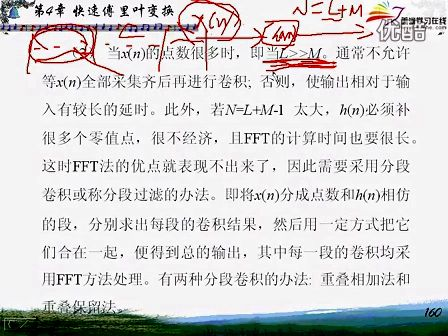 第4章 快速傅里叶变换
N=L+M
x(n)
h(n)
当x(n)的点数很多时，即当L>>M。通常不允许
等x(n)全部采集齐后再进行卷积；否则，使输出相对于输
入有较长的延时。此外，若N=L+M-1 太大，h(n)必须补
很多个零值点，很不经济，且FFT的计算时间也要很长。
这时FFT法的优点就表现不出来了，因此需要采用分段
卷积或称分段过滤的办法。即将x(n)分成点数和h(n)相仿
的段，分别求出每段的卷积结果，然后用一定方式把它
们合在一起，便得到总的输出，其中每一段的卷积均采
用FFT方法处理。有两种分段卷积的办法: 重叠相加法和
重叠保留法。
160